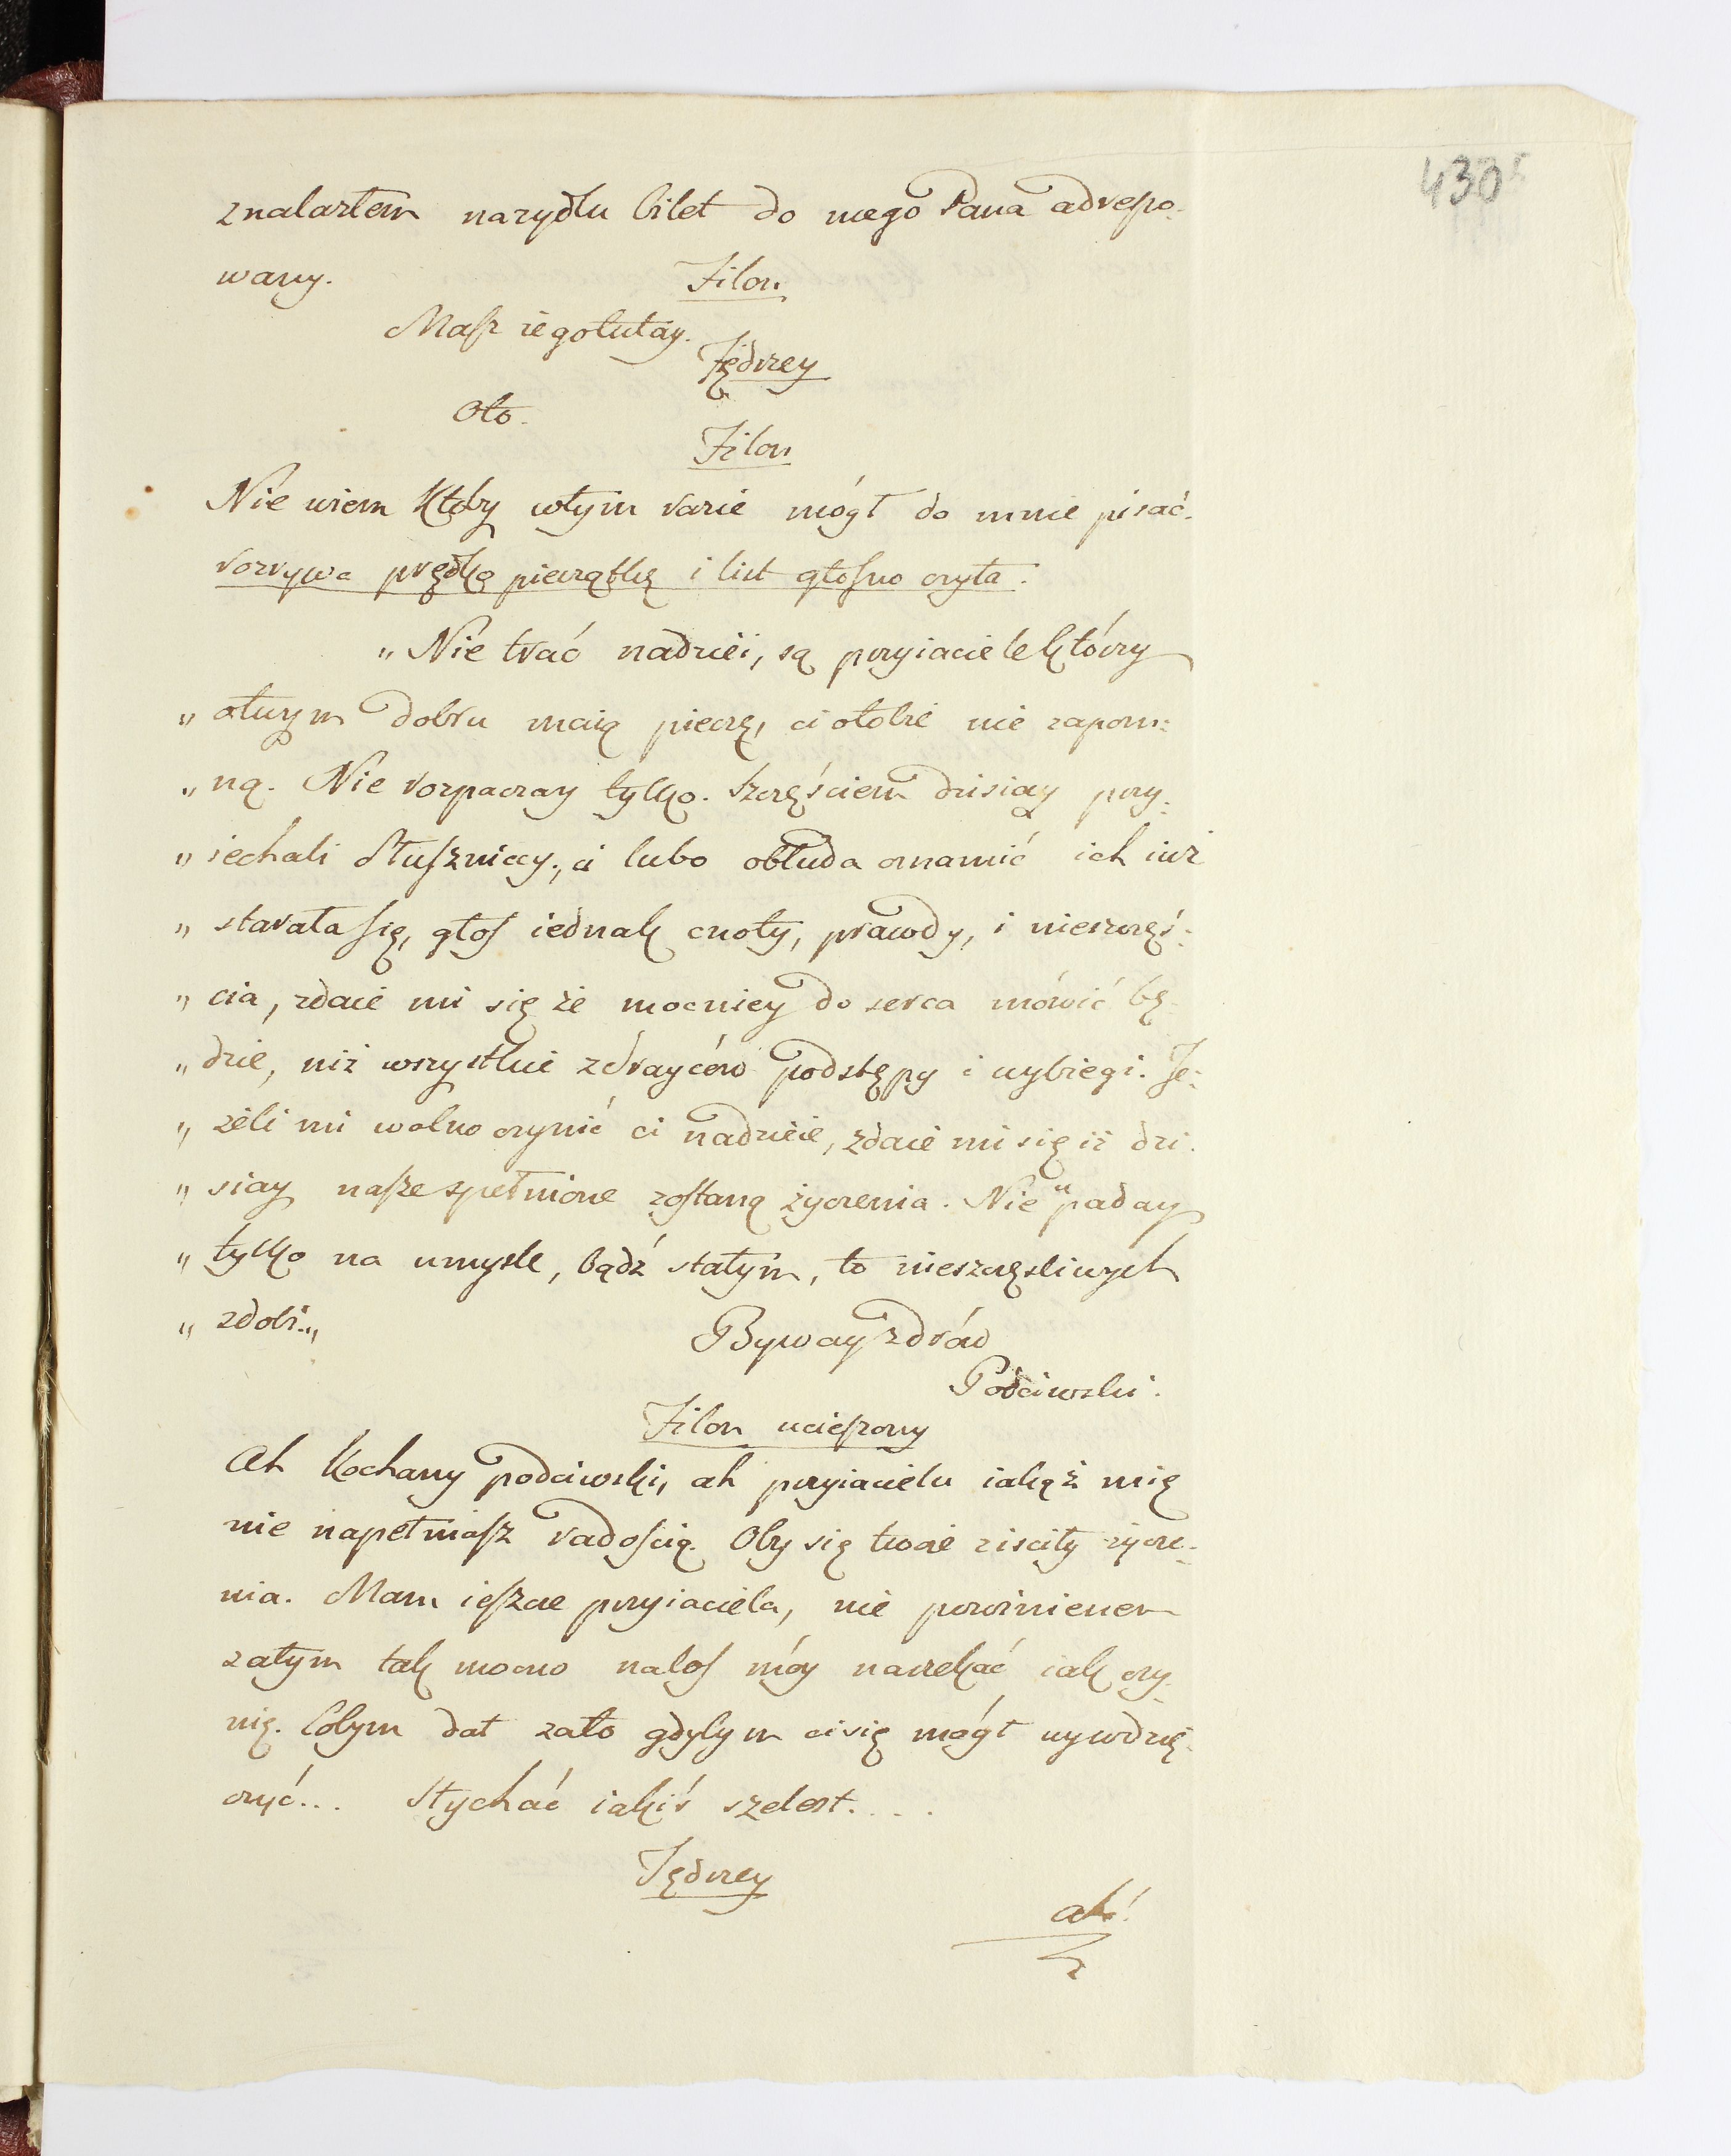 430
znalazłem narydlu bilet do mego Pana adreso-
wany.
Filon
Masz iegotutay.
Jędrzey
Oto.
Filon
Nie wiem ktoby wtym razie mógł do mnie pisać.
rozrywa prędko pieczątkę i list głosno czyta.
„Nie trać nadziei, są przyiaciele którzy
„ otwym dobru maią pieczę, ci otobie nie zapom:
„ ną. Nie rozpaczay tylko. Szczęściem dzisiay przy:
„ iechali Słuszniccy, a lubo obłuda omamić ich iuż
„ starała się, głos iednak cnoty, prawdy, i nieszczęś:
„ cia, zdaie mi się że mocniey do serca mówić bę-
„ dzie, niż wszystkie zdrayców podstępy i wybiegi. Je:
„ żeli mi wolno czynić ci nadzieie, zdaie mi się iż dzi-
„ siay nasze spełnione zostaną życzenia. Nie upaday
„ tylko na umysle, bądź stałym, to nieszczęsliwych
„ zdobi.„
Byway zdrów
Podciwski.
Filon ucieszony
Ah kochany podciwski, ah przyiacielu iakąż mię
nie napełniasz radością. Oby się twoie zisciły życze-
nia. Mam ieszcze przyiaciela, nie powinienem
zatym tak mocno nalos móy narzekać iak czy-
nię. Cobym dał zato gdybym cisię mógł wywdzię-
czyć... Słychać iakiś szelest....
Jędrzey
ah!